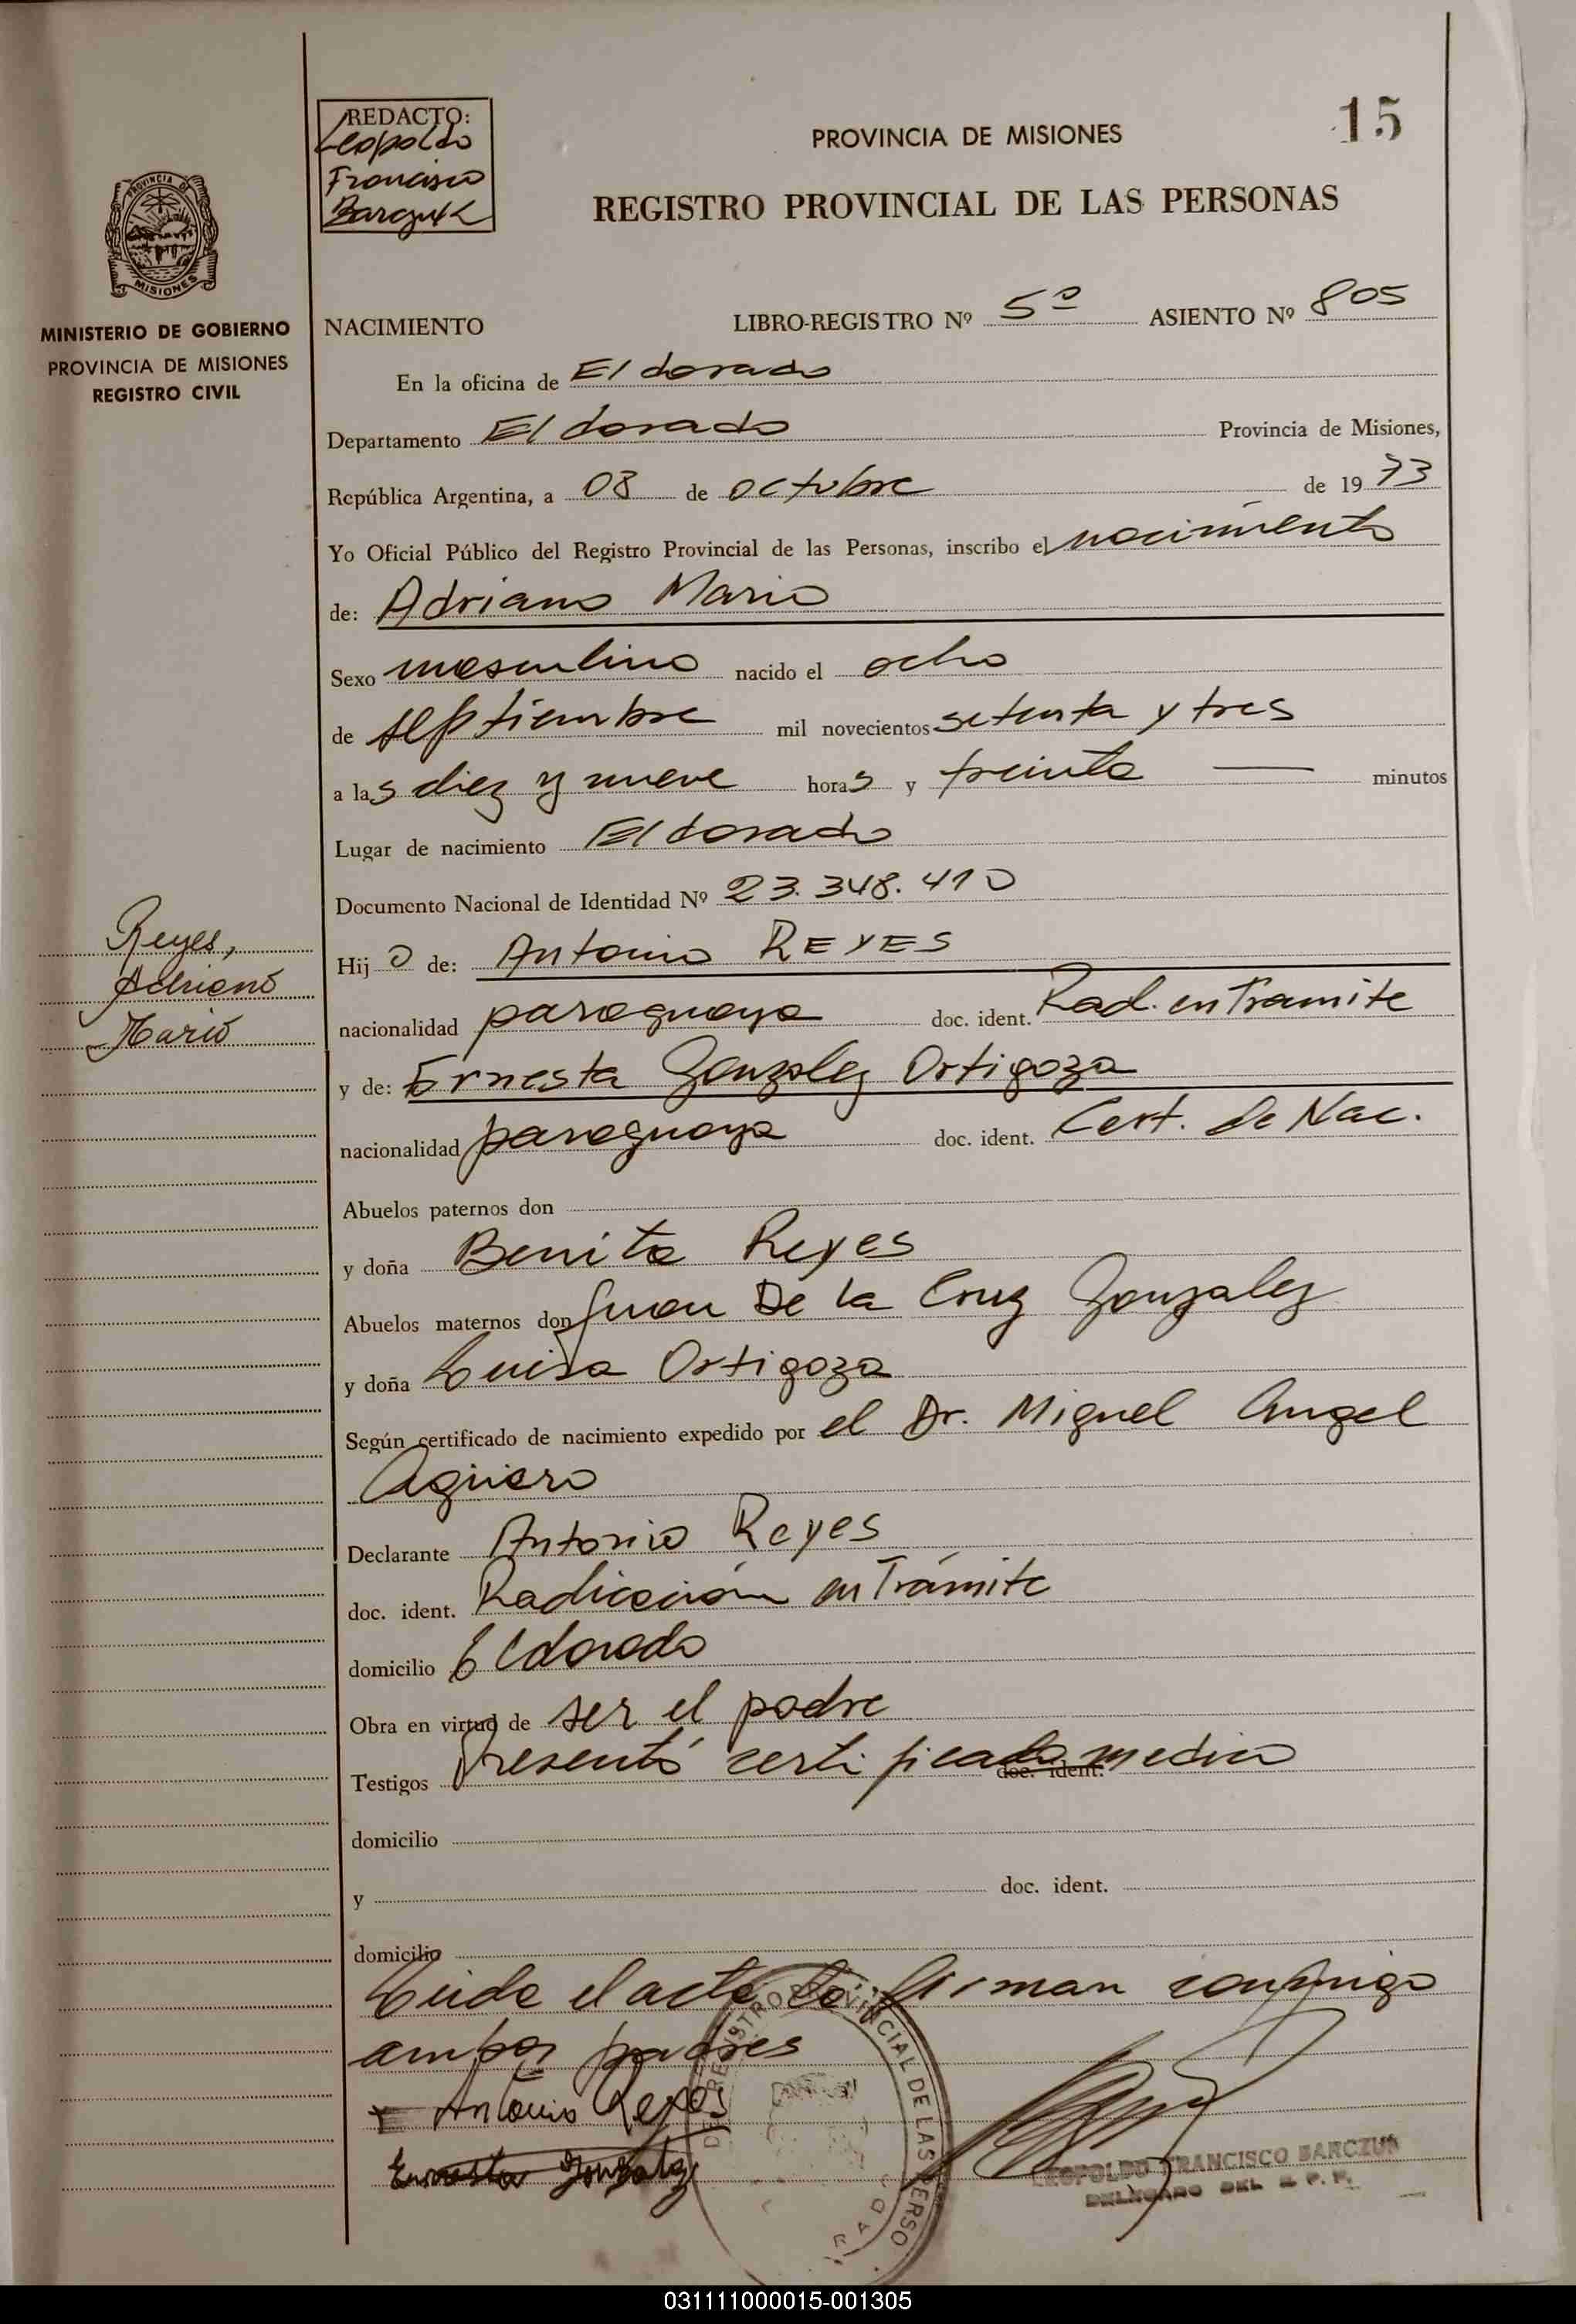 15
REDACTO:
Leopoldo
Francisco
Barczuk
PROVINCIA DE MISIONES
REGISTRO PROVINCIAL DE LAS PERSONAS
PROVINCIA DE
MISIONES
MINISTERIO DE GOBIERNO
PROVINCIA DE MISIONES
REGISTRO CIVIL
NACIMIENTO LIBRO-REGISTRO Nº 5º ASIENTO Nº 805
En la oficina de Eldorado
Departamento Eldorado Provincia de Misiones,
República Argentina, a 08 de octubre de 19 73
Yo Oficial Público del Registro Provincial de las Personas, inscribo el nacimiento
de: Adriano Mario
Sexo masculino nacido el ocho
de septiembre mil novecientos setenta y tres
a las diez y nueve horas y treinta — minutos
Lugar de nacimiento Eldorado
Documento Nacional de Identidad Nº 23.348.410
Reyes,
Adriano
Mario
Hijo de: Antonio REYES
nacionalidad paraguaya doc. ident. Rad. en Tramite
y de: Ernesta Gonzalez Ortigoza
nacionalidad paraguaya doc. ident. Cert. de Nac.
Abuelos paternos don
y doña Benita Reyes
Abuelos maternos don Juan De la Cruz Gonzalez
y doña Luisa Ortigoza
Según certificado de nacimiento expedido por el Dr. Miguel Angel
Agüero
Declarante Antonio Reyes
doc. ident. Radicación en Trámite
domicilio Eldorado
Obra en virtud de ser el padre
Testigos Presentó certificado medico doc. ident.
domicilio
y doc. ident.
domicilio
Leida el acta la firman conmigo
ambos padres
Antonio Reyes
Ernesta Gonzalez
REGISTRO PROVINCIAL DE LAS PERSO
LEOPOLDO FRANCISCO BARCZUK
DELEGADO DEL R. P. P.
031111000015-001305